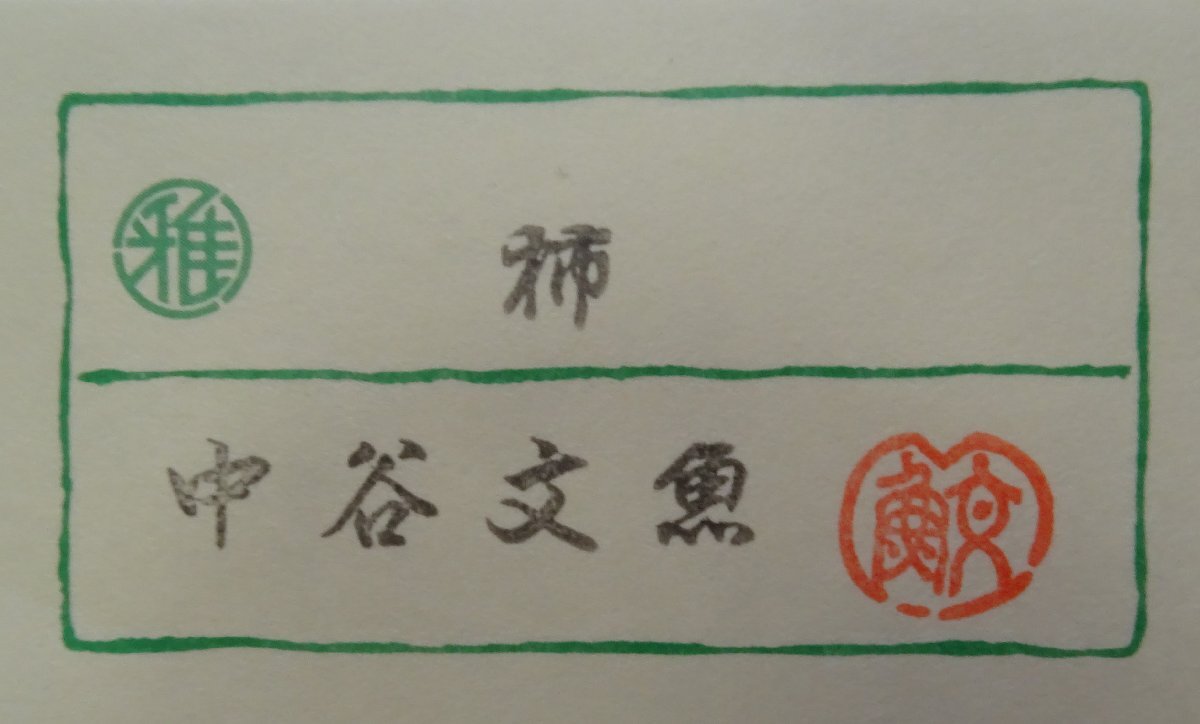 雅
柿
中谷文魚
文魚